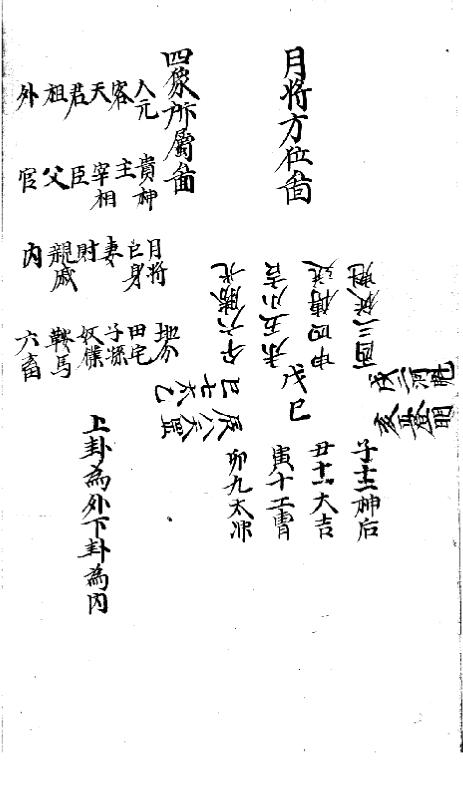 月将方位啚
酉三從魁
申四傳送
未五小吉
午六勝光
戌二河魁
亥登明
戊己
巳七太乙
辰八天罡
子十二神后
丑十一大吉
寅十工曹
卯九太冲
四象所屬啚
人元 貴神 月将 地分
客 主 己身 田宅
天 宰相 妻 子孫
君 臣 財 奴僕
祖 父 親戚 鞍馬
外 官 内 六畜
上卦為外下卦為内